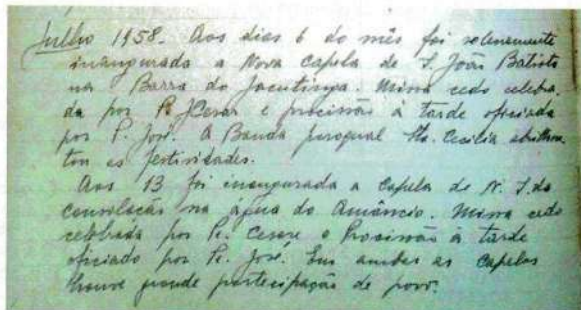 Julho 1958. Aos dias 6 do mês foi solenemente
inaugurada a Nova Capela de S. João Batista
na Barra do Jacutinga. Missa cedo celebra-
da por Pe. Cesar e procissão à tarde oficiada
por P. José. A Banda paroquial Sta. Cecilia abrilhan-
tou as festividades.
Aos 13 foi inaugurada a Capela de N. S. da
Consolação na água do Amâncio. Missa cedo
celebrada por Pe. Cesare e Procissão à tarde
oficiado por Pe. José. Em ambas as Capelas
houve grande participação de povo.